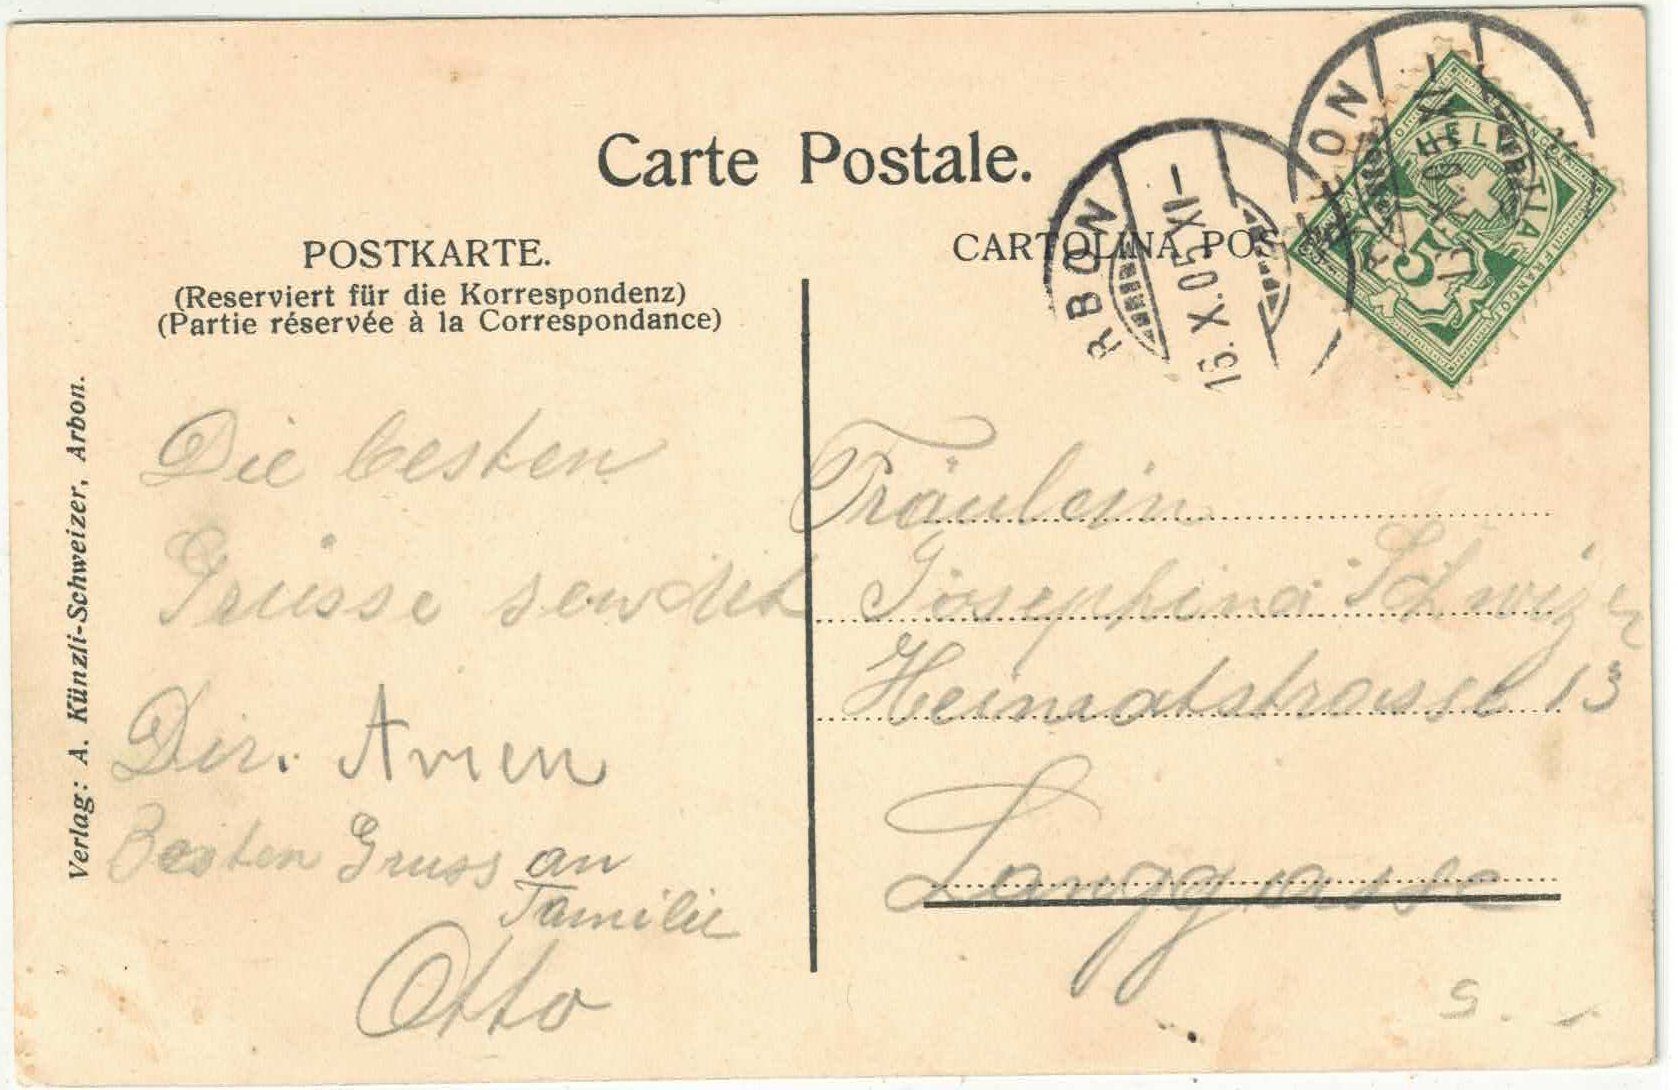 Carte Postale.
POSTKARTE.
(Reserviert für die Korrespondenz)
(Partie réservée à la Correspondance)
CARTOLINA POS
RBON
16.X.05.XI–
HELVETIA
FRANCO
5
Verlag: A. Künzli-Schweizer, Arbon.
Die besten
Grüsse sendet
Dir.
Besten Gruss an
Familie
Otto
Fräulein
Josephina
Heimatstrasse 13
Langgasse